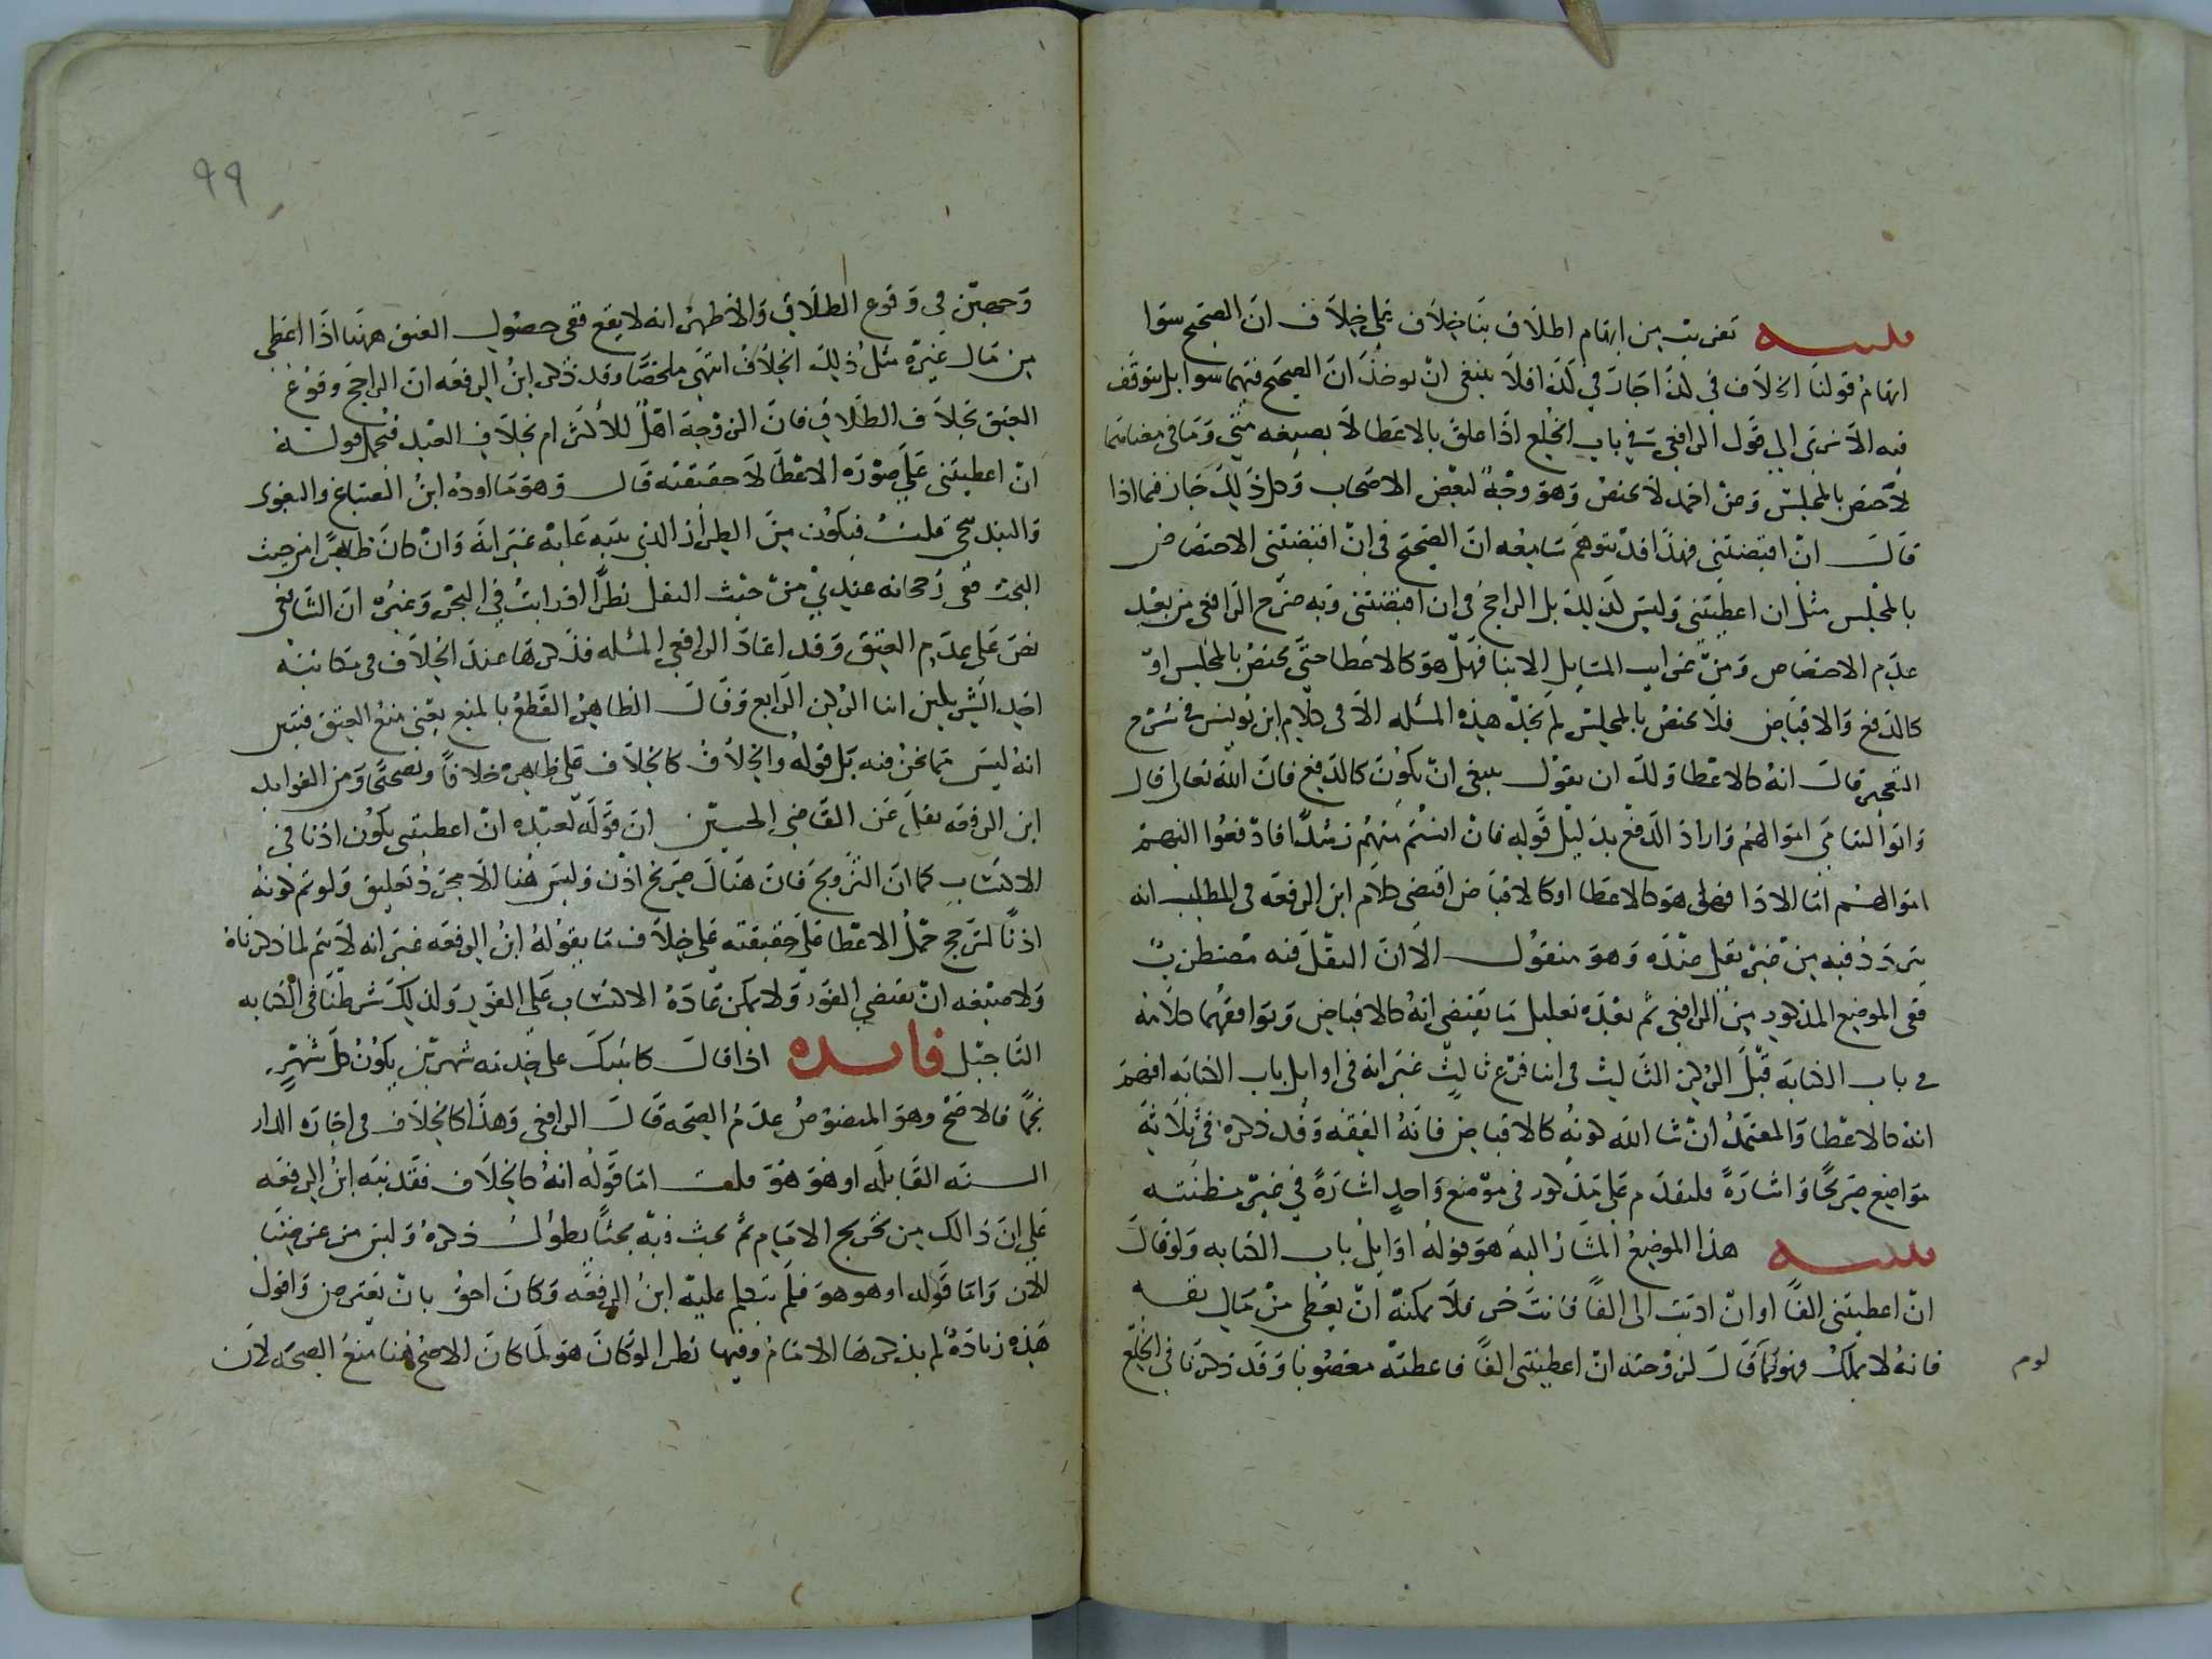 تنبيه تقريب من ابهام اطلاق بنا خلاف على خلاف ان الصحيح سوا
ابهام قولنا الخلاف في كذا جار في كذا فلا ينبغي ان يوخذ ان الصحيح فيهما سوا بل يتوقف
فيه الا ترى الى قول الرافعي في باب الخلع اذا علق بالاعطا لا بصيغه متى وما في معناها
لاختص بالمجلس وعن احمد لا يختص وهو وجه لبعض الاصحاب وكل ذلك جار فيما اذا
قال ان اقبضتني فهذا قد يتوهم سامعه ان الصحيح في ان اقبضتني الاختصاص
بالمجلس مثل ان اعطيتني وليس كذلك بل الراجح في ان اقبضتني وبه صرح الرافعي من بعد
عدم الاختصاص ومن غرايب المسايل الايتا فهل هو كالاعطا حتى يختص بالمجلس او
كالدفع والاقباض فلا يختص بالمجلس لم نجد هذه المسله الا في كلام ابن يونس في شرح
التعجيز قال انه كالاعطا ولك ان تقول ينبغي ان يكون كالدفع فان الله تعالى قال
واتوا اليتامى اموالهم واراد الدفع بدليل قوله فان انستم منهم رشدا فادفعوا اليهم
اموالهم اما الادا فهل هو كالاعطا او كالاقباض اقتضى كلام ابن الرفعه في المطلب انه
يتردد فيه من غير نقل عنده وهو منقول الا ان النقل فيه مضطرب
ففي الموضع المذكور من الرافعي ثم بعده تعليل ما يقتضي انه كالاقباض ويوافقهما كلامه
في باب الكتابه قبل الركن الثالث في اثنا فرع ثالث غير انه في اوايل باب الكتابه افهم
انه كالاعطا والمعتمد ان شا الله كونه كالاقباض فانه الفقه وقد ذكره في ثلاثه
مواضع صريحا واشارة فليقدم على مذكور في موضع واحد اشارة في غير مظنته
تنبيه هذا الموضع المشار اليه هو قوله اوايل باب الكتابه ولو قال
ان اعطيتني الفا او ان اديت الى الفا فانت حر فلا يمكنه ان يعطي من مال نفسه
فانه لا يملك فهو كما قال لزوجته ان اعطيتني الفا فاعطته مغصوبا وقد ذكرنا في الخلع
٩٩
وجهين في وقوع الطلاق والاظهر انه لا يقع ففي حصول العتق ههنا اذا اعطى
من مال غيره مثل ذلك الخلاف انتهى ملخصا وقد ذكر ابن الرفعه ان الراجح وقوع
العتق بخلاف الطلاق فان الزوجة اهل للالتزام بخلاف العبد فيحمل قوله
ان اعطيتني على صورة الاعطا لا حقيقته قال وهو ما اورده ابن الصباغ والبغوي
والبندنيجي قلت فيكون من الطراز الذي نبه عليه غير انه وان كان ظاهرا من حيث
البحث ففي رجحانه عندي من حيث النقل نظر اذ رايت في البحر وغيره ان الشافعي
نص على عدم العتق وقد اعاد الرافعي المسله فذكرها عند الخلاف في مكاتبة
احد الشريكين اثنا الركن الرابع وقال الظاهر القطع بالمنع يعني منع العتق فتبين
انه ليس مما نحن فيه بل قوله والخلاف كالخلاف على ظاهره خلافا وتصحيحا ومن الفوايد
ابن الرفعه نقل عن القاضي الحسين ان قوله لعبده ان اعطيتني يكون اذنا في
الاكتساب كما ان التزويج فان هناك صريح اذن وليس هنا الا مجرد تعليق ولو تم كونه
اذنا لترجح حمل الاعطا على حقيقته على خلاف ما يقوله ابن الرفعه غير انه لا يتم لما ذكرناه
ولا صيغه ان تقتضي الفور ولا يمكن عادة الاكتساب على الفور ولذلك شرطنا في الكتابه
التاجيل فايده اذا قال كاتبتك على خدمه شهرين يكون كل شهر
نجما فالاصح وهو المنصوص عدم الصحه قال الرافعي وهذا كالخلاف في اجارة الدار
السنه القابله او هو هو قلت اما قوله انه كالخلاف فقد نبه ابن الرفعه
على ان ذالك من تخريج الامام ثم بحث فيه بحثا يطول ذكره وليس من غرضنا
الان واما قوله او هو هو فلم يتكلم عليه ابن الرفعه وكان احق بان يعترض واقول
هذه زيادة لم يذكرها الامام وفيها نظر اذ لو كان هو لما كان الاصح هنا منع الصحه لان